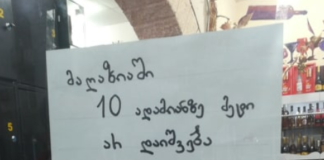 მაღაზიაში
10 ადამიანზე მეტი
არ დაიშვება
5